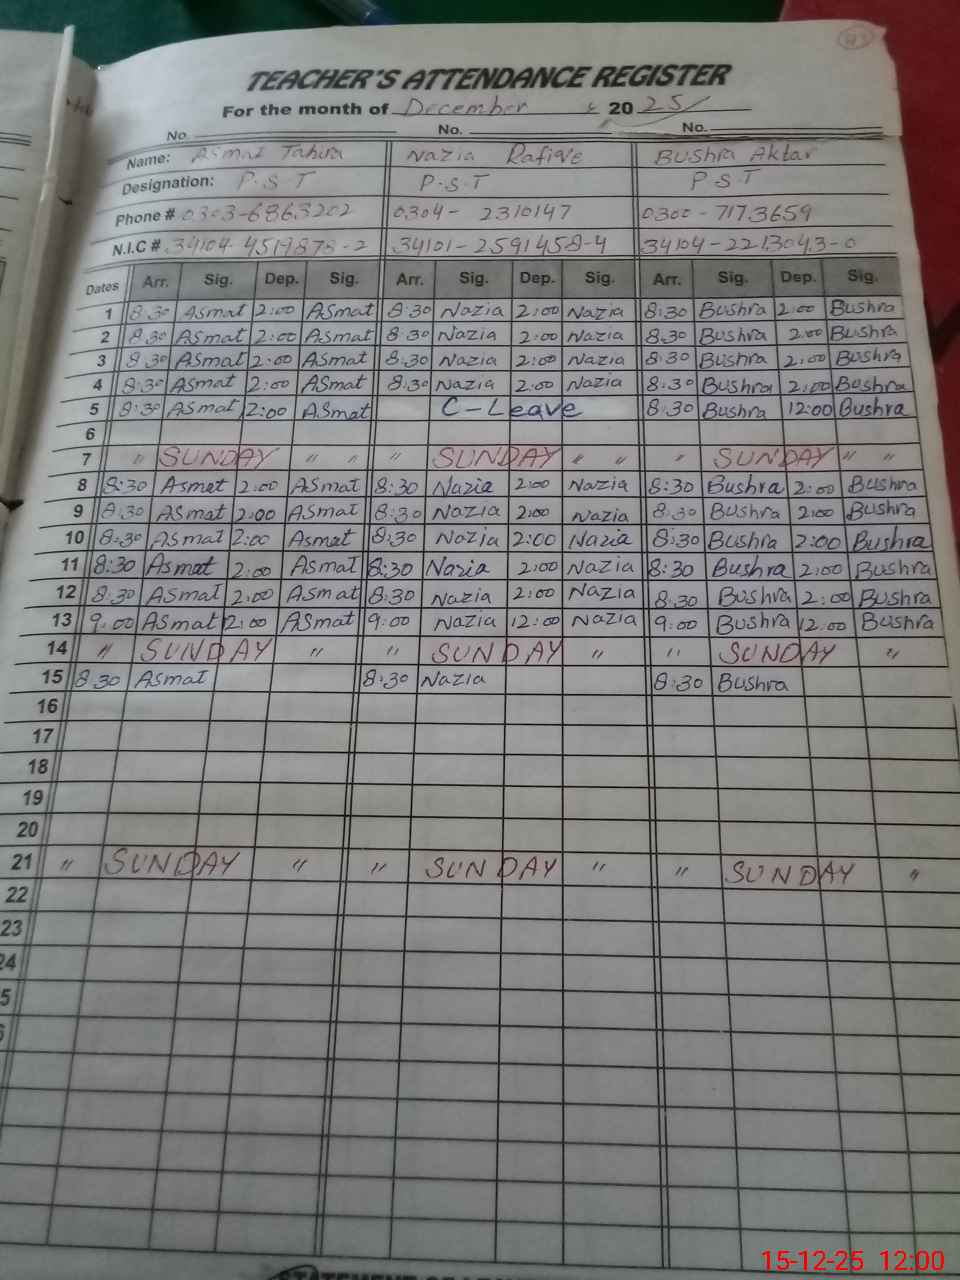 TEACHER'S ATTENDANCE REGISTER
For the month of December 2025/
No. No. No.
Name: Asmat Tahira Nazia Rafiqe Bushra Aktar
Designation: P.S.T P.S.T P S T
Phone # 0303-6863202 0304- 2310147 0300-7173659
N.I.C # 34104-4519878-2 34101-2591458-4 34104-2213043-0
Dates Arr. Sig. Dep. Sig. Arr. Sig. Dep. Sig. Arr. Sig. Dep. Sig.
1 8:30 Asmat 2:00 Asmat 8:30 Nazia 2:00 Nazia 8:30 Bushra 2:00 Bushra
2 8:30 Asmat 2:00 Asmat 8:30 Nazia 2:00 Nazia 8:30 Bushra 2:00 Bushra
3 8:30 Asmat 2:00 Asmat 8:30 Nazia 2:00 Nazia 8:30 Bushra 2:00 Bushra
4 8:30 Asmat 2:00 Asmat 8:30 Nazia 2:00 Nazia 8:30 Bushra 2:00 Bushra
5 8:30 Asmat 2:00 Asmat C-Leave 8:30 Bushra 12:00 Bushra
6
7 " SUNDAY " " " SUNDAY " " " SUNDAY " "
8 8:30 Asmat 2:00 Asmat 8:30 Nazia 2:00 Nazia 8:30 Bushra 2:00 Bushra
9 8:30 Asmat 2:00 Asmat 8:30 Nazia 2:00 Nazia 8:30 Bushra 2:00 Bushra
10 8:30 Asmat 2:00 Asmat 8:30 Nazia 2:00 Nazia 8:30 Bushra 2:00 Bushra
11 8:30 Asmat 2:00 Asmat 8:30 Nazia 2:00 Nazia 8:30 Bushra 2:00 Bushra
12 8:30 Asmat 2:00 Asmat 8:30 Nazia 2:00 Nazia 8:30 Bushra 2:00 Bushra
13 9:00 Asmat 2:00 Asmat 9:00 Nazia 12:00 Nazia 9:00 Bushra 12:00 Bushra
14 " SUNDAY " " SUNDAY " " SUNDAY "
15 8:30 Asmat 8:30 Nazia 8:30 Bushra
16
17
18
19
20
21 " SUNDAY " " SUNDAY " " SUNDAY "
22
23
24
5
15-12-25 12:00